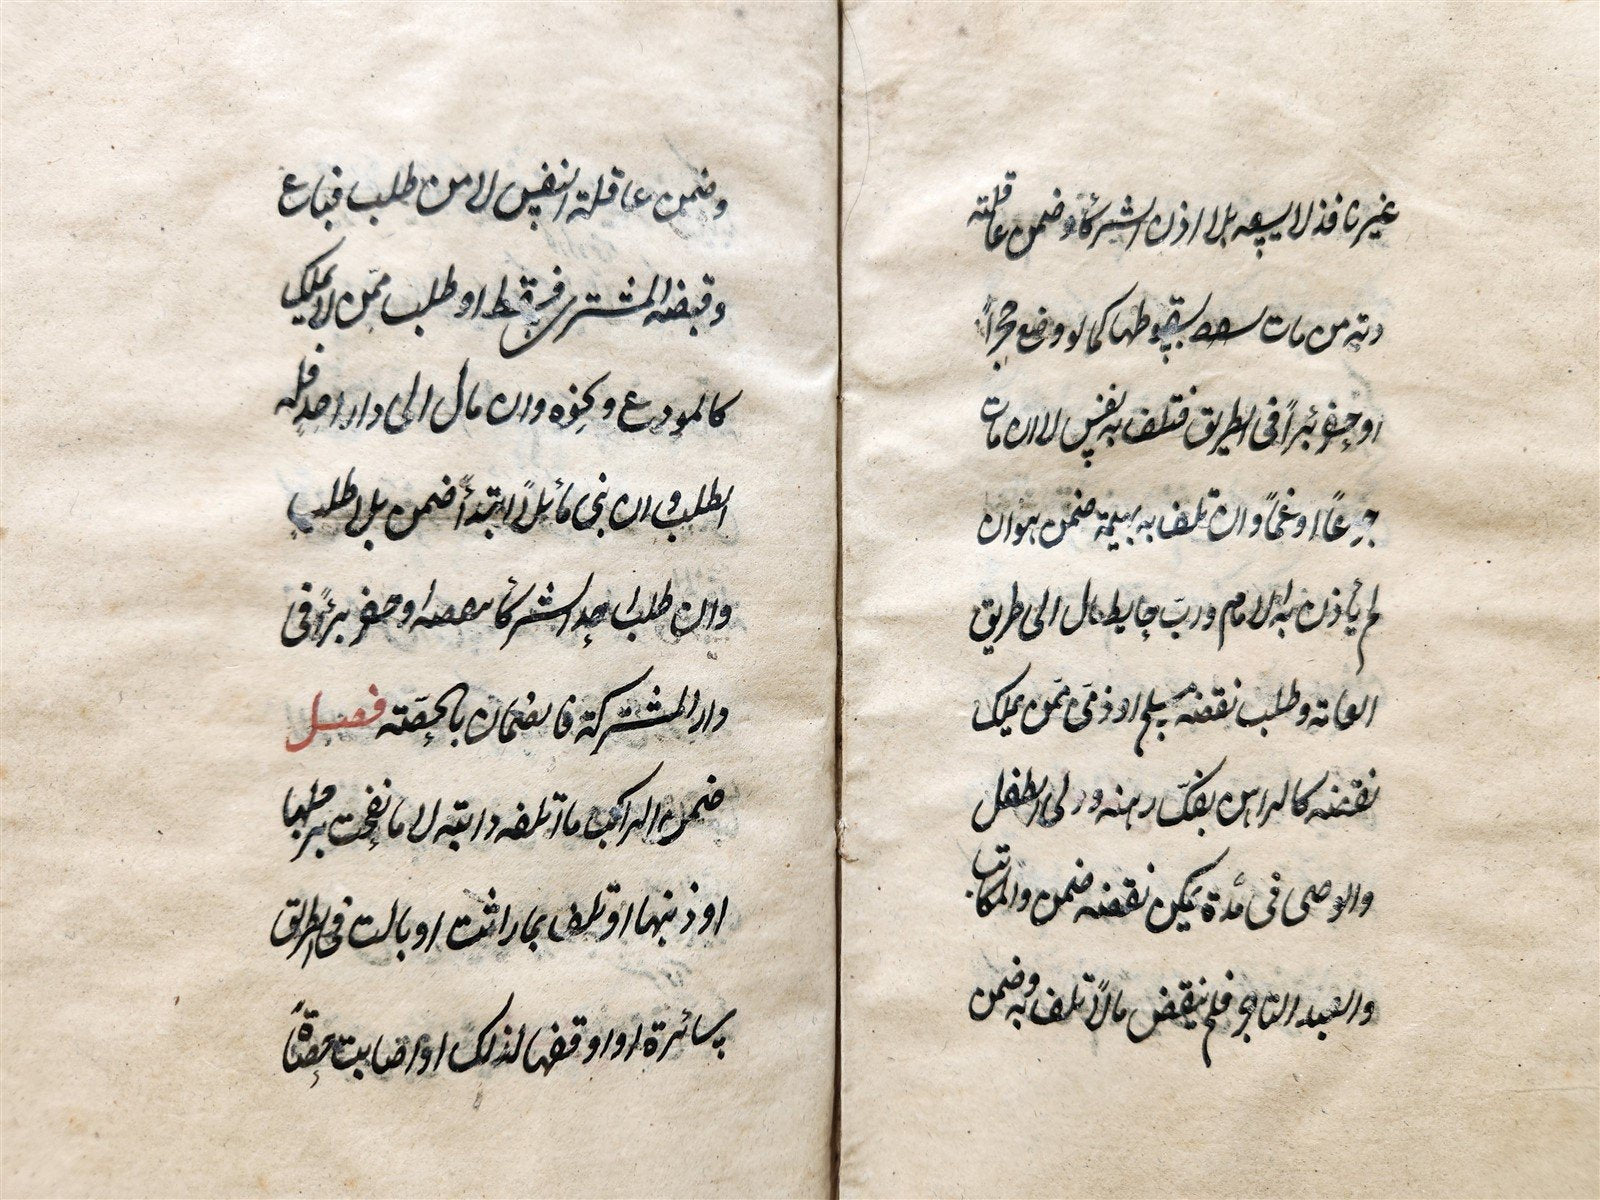 غير نافذ لا يسعه بلا اذن الشركاء وضمن عاقلته
دية من مات بسقوطها كما لو وضع حجراً
او حفر بئراً فى الطريق فتلف به نفس لا ان مات
جوعاً او غماً وان تلف به بهيمة ضمن هو ان
لم يأذن به الامام ورب حايط مال الى طريق
العامة وطلب نقضه مسلم او ذمى ممن يملك
نقضه كالراهن بفك رهنه وولى الطفل
والوصى فى مدة يمكن نقضه ضمن والمكاتب
والعبد التاجر فلم ينقض مالاً تلف به وضمن
وضمن عاقلته النفس لا من طلب فباع
وقبضه المشترى فسقط او طلب ممن لا يملك
كالمودع ونحوه وان مال الى دار احد فله
الطلب وان بنى مائلاً ابتدأ ضمن بلا طلب
وان طلب احد الشركاء او حفر بئراً فى
دار المشتركة فالضمان بالحصته فصل
ضمن الراكب ما اتلفه دابته لا ما نفحت برجلها
او ذنبها او تلف بما راثت او بالت فى الطريق
سائرة او اوقفها لذلك او اصابت حصاةً